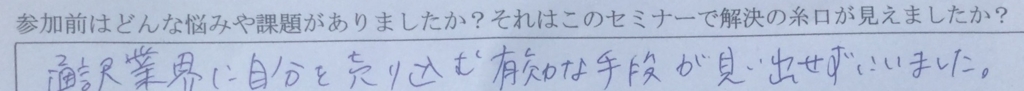 参加前はどんな悩みや課題がありましたか？それはこのセミナーで解決の糸口が見えましたか？
通訳業界に自分を売り込む有効な手段が見い出せずにいました。